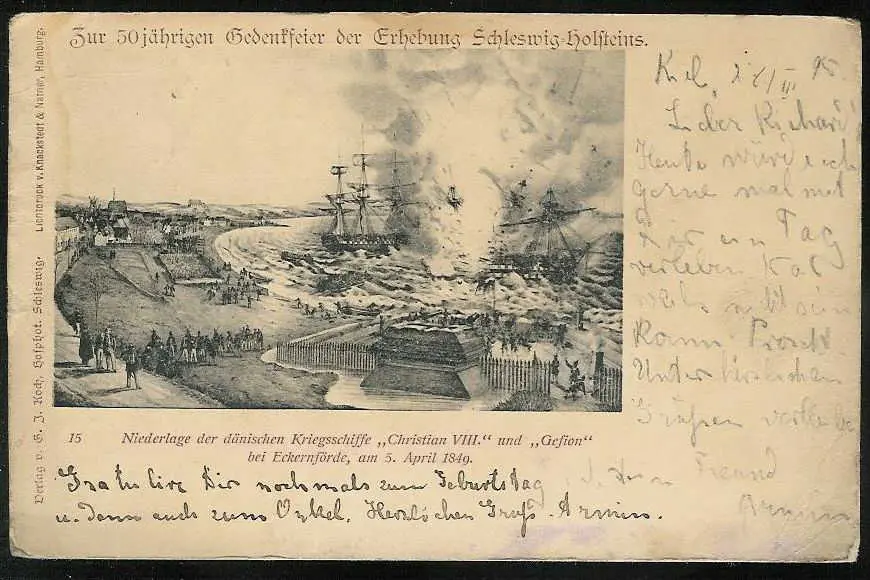 Zur 50jährigen Gedenkfeier der Erhebung Schleswig-Holsteins.
Verlag v. G. J. Koch, Hofphot. Schleswig. Lichtdruck v. Knackstedt & Näther, Hamburg.
15 Niederlage der dänischen Kriegsschiffe „Christian VIII.“ und „Gefion“
bei Eckernförde, am 5. April 1849.
Kiel, III 98.
Lieber Richard!
Heute würde ich
gerne mal mit
Dir ein Tag
verleben
sein
kann Prosit.
Unter herzlichen
Grüßen verbleibe
Dein Freund
Armin
Gratulire Dir nochmals zum Geburtstag
u. dann auch zum Onkel. Herzlichen Gruß Armin.